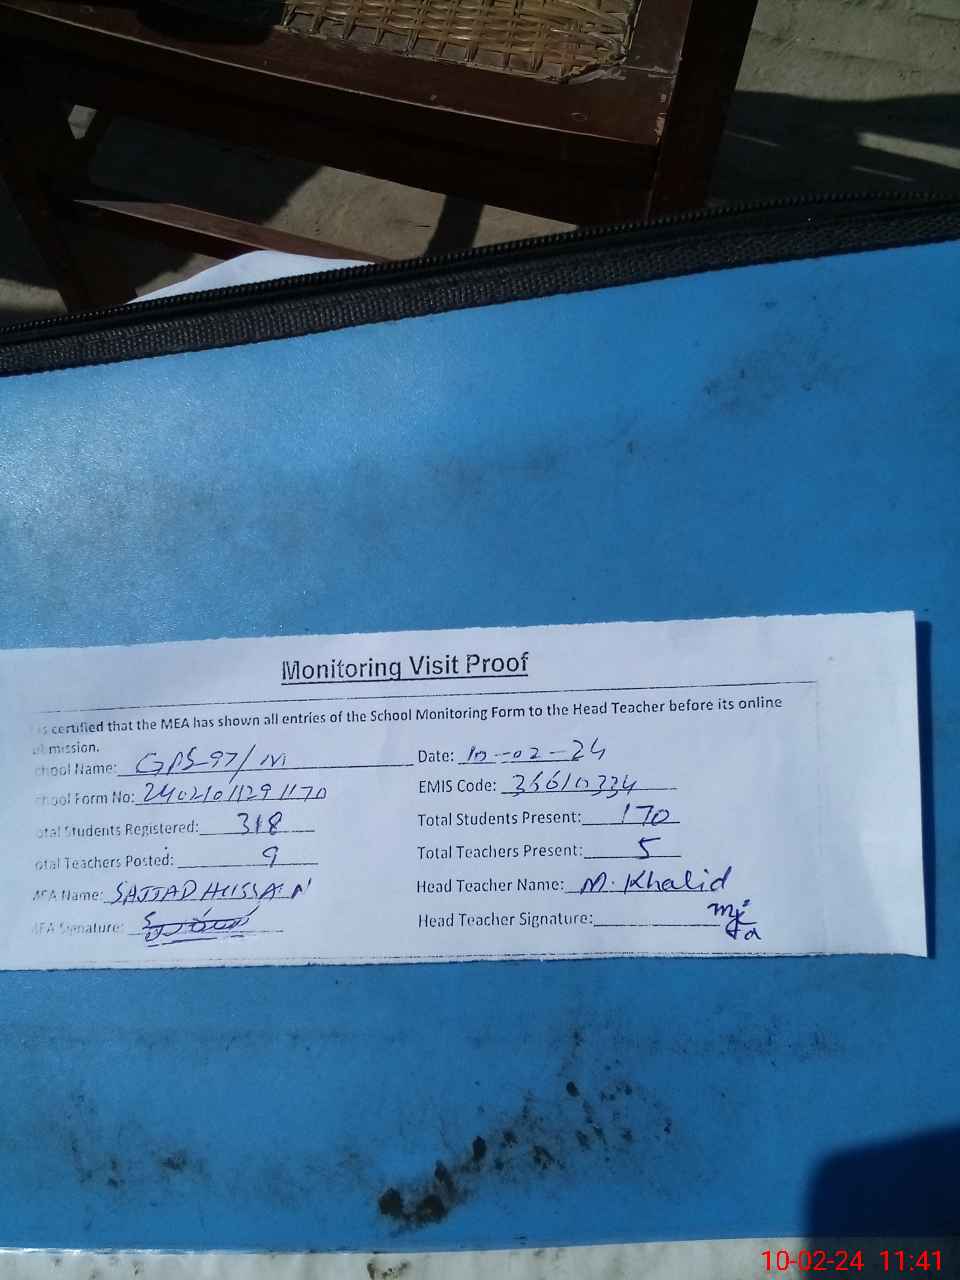 Monitoring Visit Proof
is certified that the MEA has shown all entries of the School Monitoring Form to the Head Teacher before its online
mission.
chool Name: GPS 97/M Date: 10-02-24
chool Form No: 24021011291170 EMIS Code:
otal Students Registered: 318 Total Students Present: 170
otal Teachers Posted: 9 Total Teachers Present: 5
MEA Name: SAJJAD HUSSAIN Head Teacher Name: M. Khalid
MEA Signature: Head Teacher Signature:
10-02-24 11:41